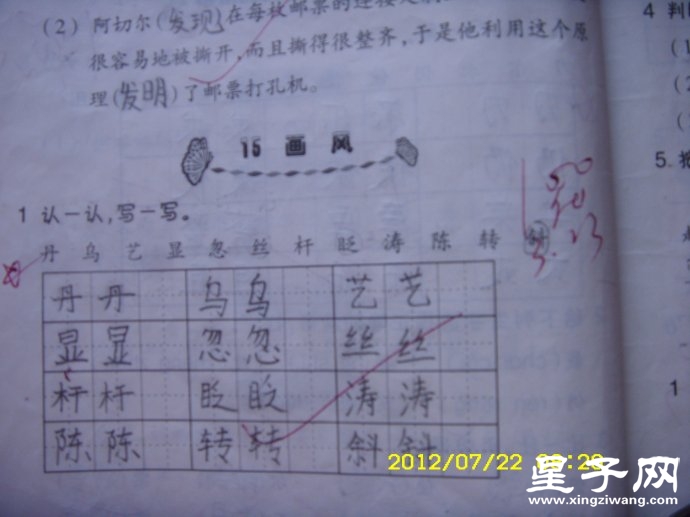 (2) 阿切尔(发现)在每枚邮票的连接处
很容易地被撕开,而且撕得很整齐,于是他利用这个原
理(发明)了邮票打孔机。
15 画 风
1 认一认,写一写。
丹 乌 艺 显 忽 丝 杆 眨 涛 陈 转 斜
丹 丹 乌 乌 艺 艺
显 显 忽 忽 丝 丝
杆 杆 眨 眨 涛 涛
陈 陈 转 转 斜 斜
4 判
(1
(2
(
5.
1
2012/07/22
星子网
www.xingziwang.com